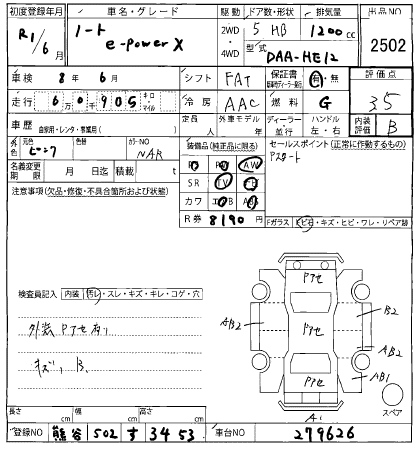 初度登録年月 車名・グレード 駆動 ドア数・形状 排気量 出品NO
R1/6月 ノート e-power X 2WD・4WD 5 HB 1200cc 2502
型式 DAA-HE12
車検 8年 6月 シフト FAT 保証書 有・無 評価点
走行 6万0千905 キロ・マイル 冷房 AAC 燃料 G 3.5
車歴 自家用・レンタ・事業用( ) 定員 人 外車モデル 年 ディーラー・並行 ハンドル 左・右 内装評価 B
外色 元色 ピンク 色替 カラーNO NAR 装備品(純正品に限る) セールスポイント(正常に作動するもの)
Pスタート
名義変更期限 月 日迄 積載 t
AW
SR TV
カワ
R券 8190円
注意事項(欠品・修復・不具合箇所および状態)
Fガラス 飛石・キズ・ヒビ・ワレ・リペア跡
検査員記入 内装 汚れ・スレ・キズ・キレ・コゲ・穴
外装 Pアセ有り
キズ, B.
Pアセ
Pアセ
Pアセ
AB2
B2
AB2
AB1
A1
スペア
長さ cm 幅 cm 高さ cm
登録NO 熊谷 502 す 3453 車台NO 279626